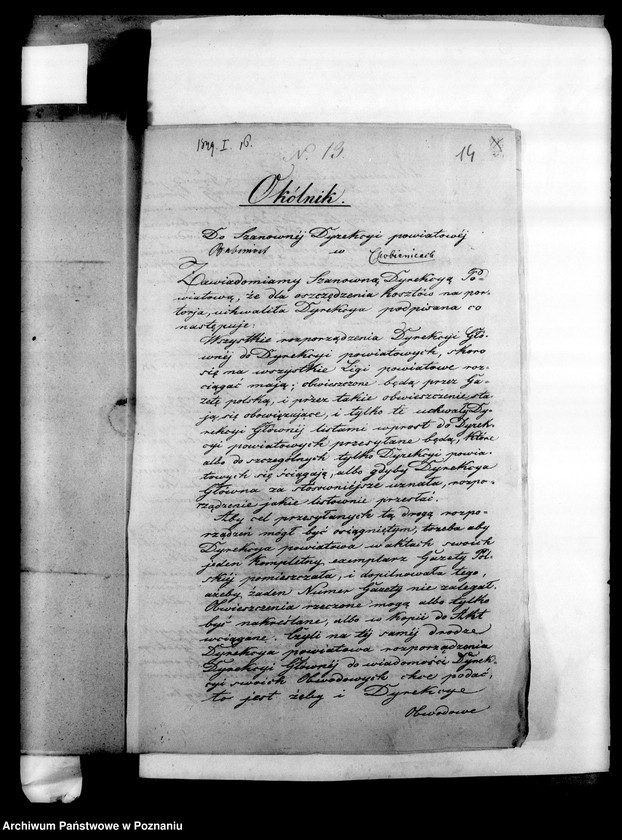 1849. I. 18.
N. 13.
14
Okólnik.
Do Szanownéj Dyrekcyi powiatowéj
w
Zawiadomiamy Szanowną Dyrekcyą Po-
wiatową, że dla oszczędzenia kosztów na por-
torja, uchwaliła Dyrekcya podpisana co
następuje:
Wszystkie rozporządzenia Dyrekcyi Głó-
wnéj do Dyrekcyi powiatowych, skoro
się na wszystkie Ligi powiatowe roz-
ciągać mają; obwieszczone będą przez Ga-
zetę polską, i przez takie obwieszczenie sta-
ją się obowięzujące, i tylko te uchwały Dy-
rekcyi Głównéj listami wprost do Dyrek-
cyi powiatowych przesyłane będą, które
albo do szczególnych tylko Dyrekcyi powia-
towych się ściągają, albo gdyby Dyrekcya
Główna za stósowniejsze uznała, rozpo-
rządzenie jakie listownie przesłać.
Aby cel przesyłanych tą drogą rozpo-
rządzeń mógł być osiągniętym, trzeba aby
Dyrekcya powiatowa w aktach swoich
jeden kompletny exemplarz Gazety Pol-
skiéj pomieszczała, i dopilnowała tego,
ażeby żaden Numer Gazety nie zalegał.
Obwieszczenia rzeczone mogą albo tylko
być nakréślane, albo w kopii do Akt
wciągane. Czyli na téj saméj drodze
Dyrekcya powiatowa rozporządzenia
Dyrekcyi Głównéj do wiadomości Dyrek-
cyi swoich Obwodowych chce podać,
to jest żeby i Dyrekcye
Obwodowe
Archiwum Państwowe w Poznaniu